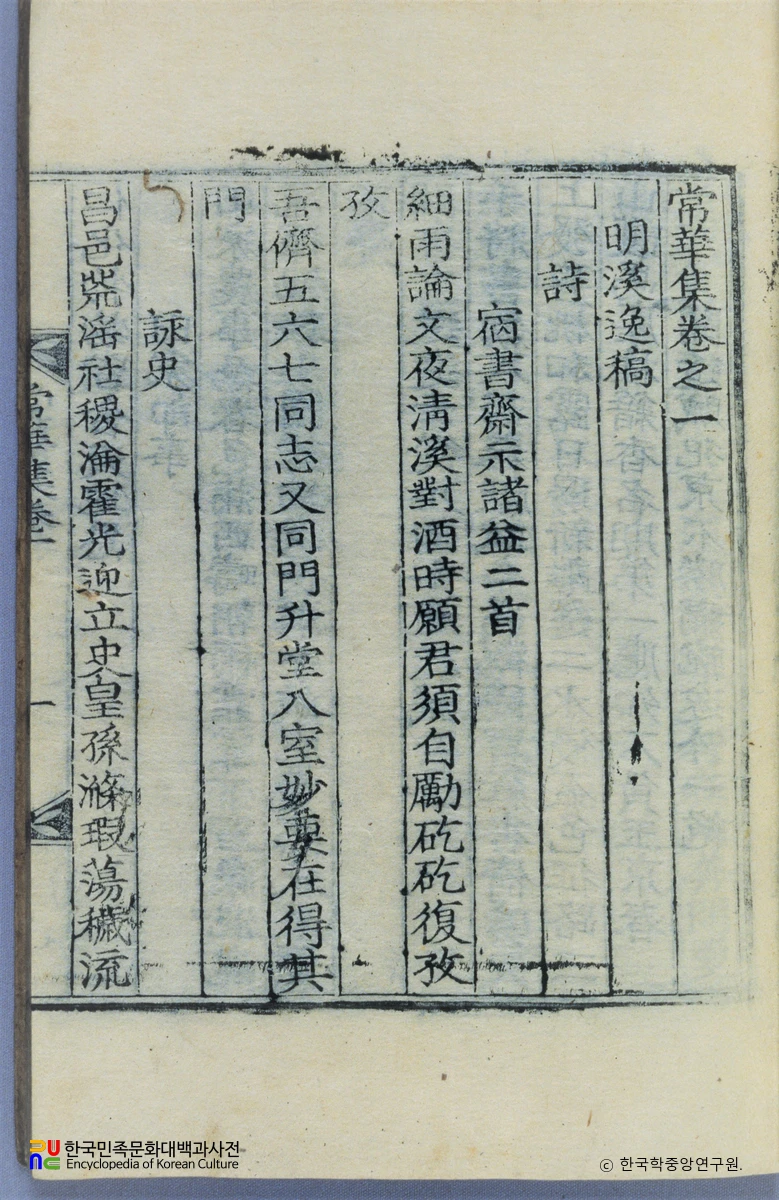 常華集卷之一
明溪逸稿
詩
宿書齋示諸益二首
細雨論文夜淸溪對酒時願君須自勵矻矻復孜
孜
吾儕五六七同志又同門升堂入室妙要在得其
門
詠史
昌邑荒滛社稷淪霍光迎立史皇孫滌瑕蕩穢流
常華集卷一
一
한국민족문화대백과사전
Encyclopedia of Korean Culture
ⓒ 한국학중앙연구원.